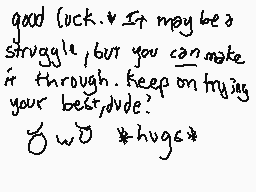 good luck.♥ It may be a
struggle, but you can make
it through. Keep on trying
your best, dude!
ŎwŎ *hugs*